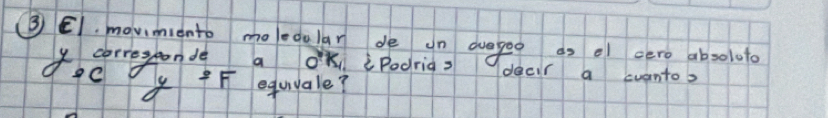 ③ El. movimiento molecular de un cuerpo es el cero absoluto
y corresponde a 0°K. ¿Podrias decir a cuantos
°C y °F equivale?